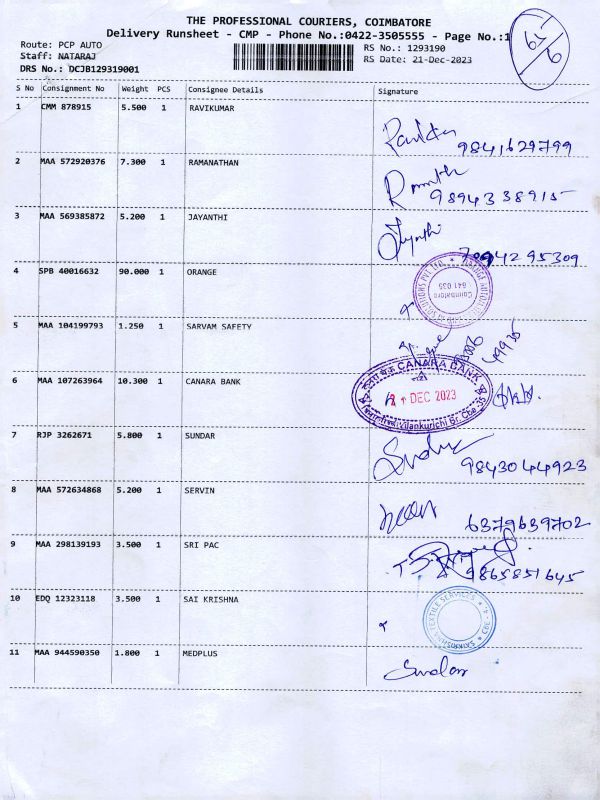 THE PROFESSIONAL COURIERS, COIMBATORE
Delivery Runsheet - CMP - Phone No.:0422-3505555 - Page No.:1
Route: PCP AUTO
RS No.: 1293190
Staff: NATARAJ
RS Date: 21-Dec-2023
DRS No.: DCJB129319001
65/6
S No Consignment No Weight PCS Consignee Details Signature
1 CMM 878915 5.500 1 RAVIKUMAR
9841629799
2 MAA 572920376 7.300 1 RAMANATHAN
9894338915
3 MAA 569385872 5.200 1 JAYANTHI
Jayanthi
7094295309
4 SPB 40016632 90.000 1 ORANGE
Coimbatore
641 035
5 MAA 104199793 1.250 1 SARVAM SAFETY
6 MAA 107263964 10.300 1 CANARA BANK
CANARA BANK
DEC 2023
7 RJP 3262671 5.800 1 SUNDAR
9843044923
8 MAA 572634868 5.200 1 SERVIN
6379639702
9 MAA 298139193 3.500 1 SRI PAC
9865851645
10 EDQ 12323118 3.500 1 SAI KRISHNA
TEXTILE SERVICES
11 MAA 944590350 1.800 1 MEDPLUS